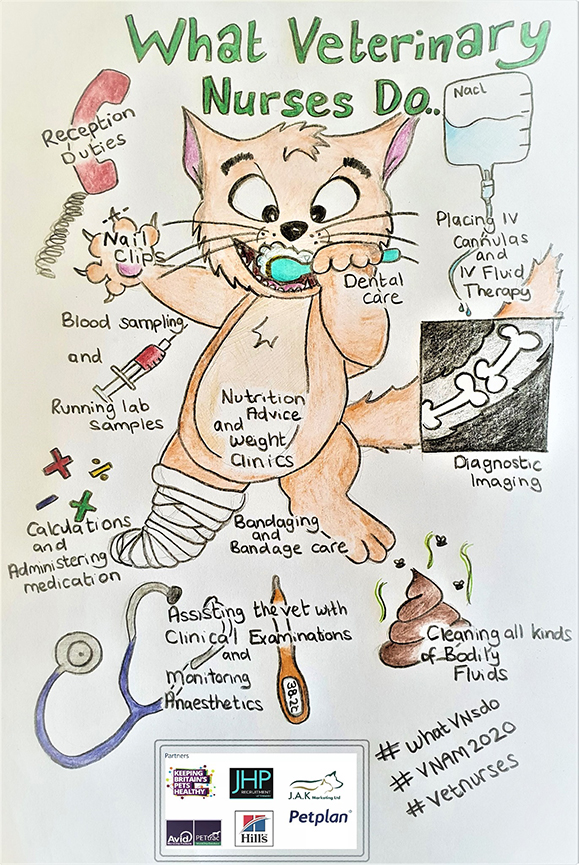 What Veterinary
Nurses Do..
Reception
Duties
Nacl
Nail
Clips
Placing IV
Cannulas
and
IV Fluid
Therapy
Dental
care
Blood sampling
and
Running lab
samples
Nutrition
Advice
and
Weight
Clinics
Diagnostic
Imaging
Calculations
and
Administering
medication
Bandaging
and
Bandage care
Assisting the vet with
Clinical Examinations
and
Monitoring
Anaesthetics
38.2c
Cleaning all kinds
of Bodily
Fluids
# whatVNsdo
# VNAM2020
# Vetnurses
Partners
KEEPING
BRITAIN'S
PETS
HEALTHY
JHP
RECRUITMENT
J.A.K Marketing Ltd
Avid
PETtrac
Hill's
Petplan®